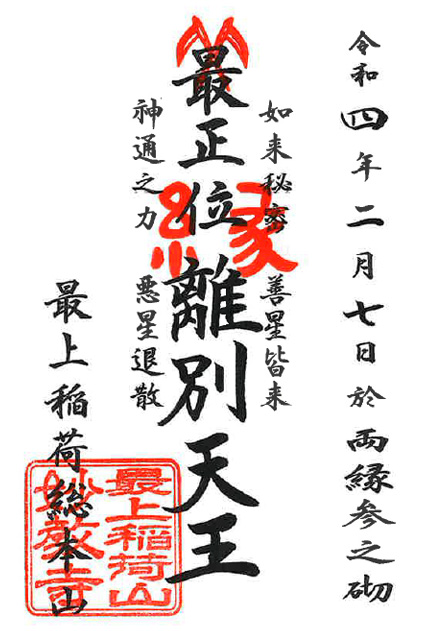 令和四年二月七日於両縁参之砌
如来秘密 善星皆来
最正位離別天王
神通之力 悪星退散
最上稲荷総本山
縁
最上稲荷山
妙教寺